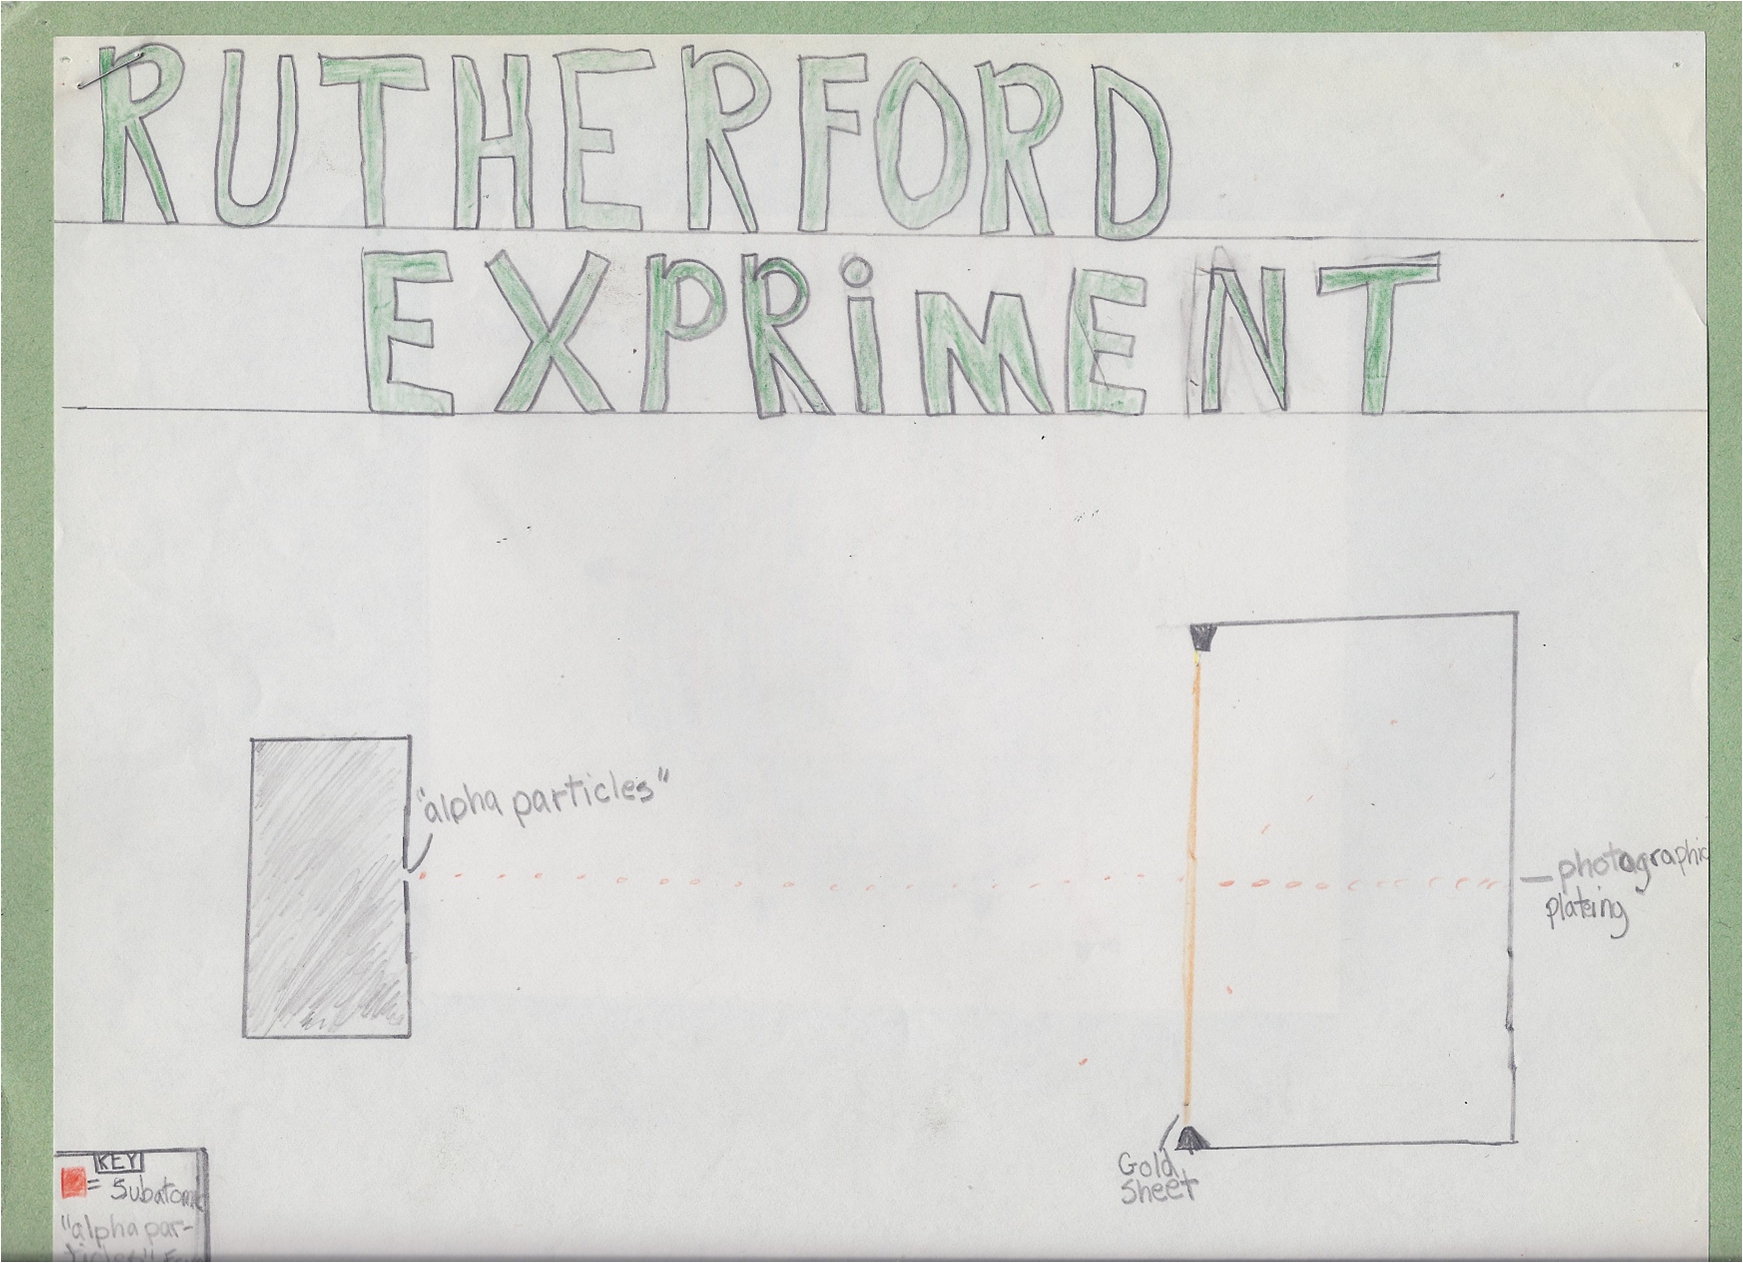 RUTHERFORD
EXPRiMENT
"alpha particles"
photographic
plateing
Gold
Sheet
KEY
= Subatomic
"alpha par-
ticles"